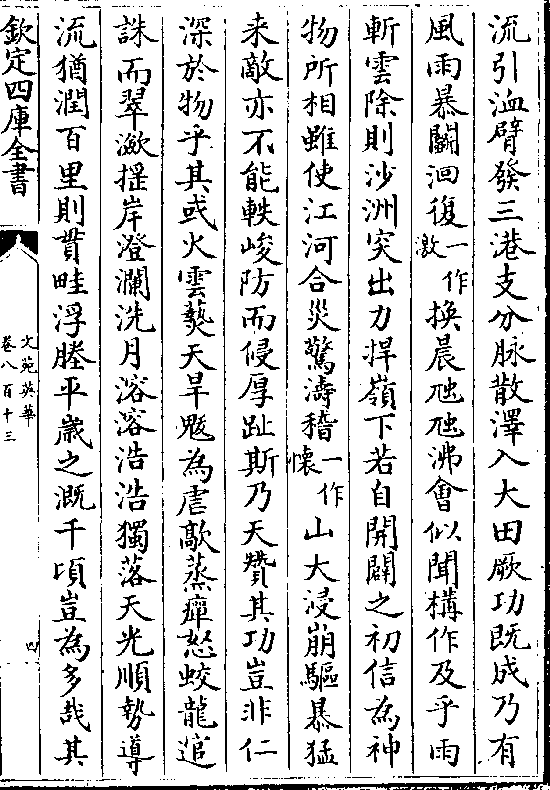 流引洫臂發三港支分脉散澤入大田厥功既成乃有
風雨暴鬭洄復一作激換晨虺虺沸會似聞構作及乎雨
斬雲除則沙洲突出力捍嶺下若自開闢之初信為神
物所相雖使江河合災驚濤稽一作懷山大浸崩驅暴猛
来敵亦不能軼峻防而侵厚趾斯乃天贊其功豈非仁
深於物乎其或火雲爇天旱魃為虐歊蒸癉怒蛟龍逭
誅而翠瀲揺岸澄瀾洗月溶溶浩浩獨落天光順勢導
流猶潤百里則貫畦浮塍平歲之溉千頃豈為多哉其
欽定四庫全書
文苑英華
卷八百十三
四